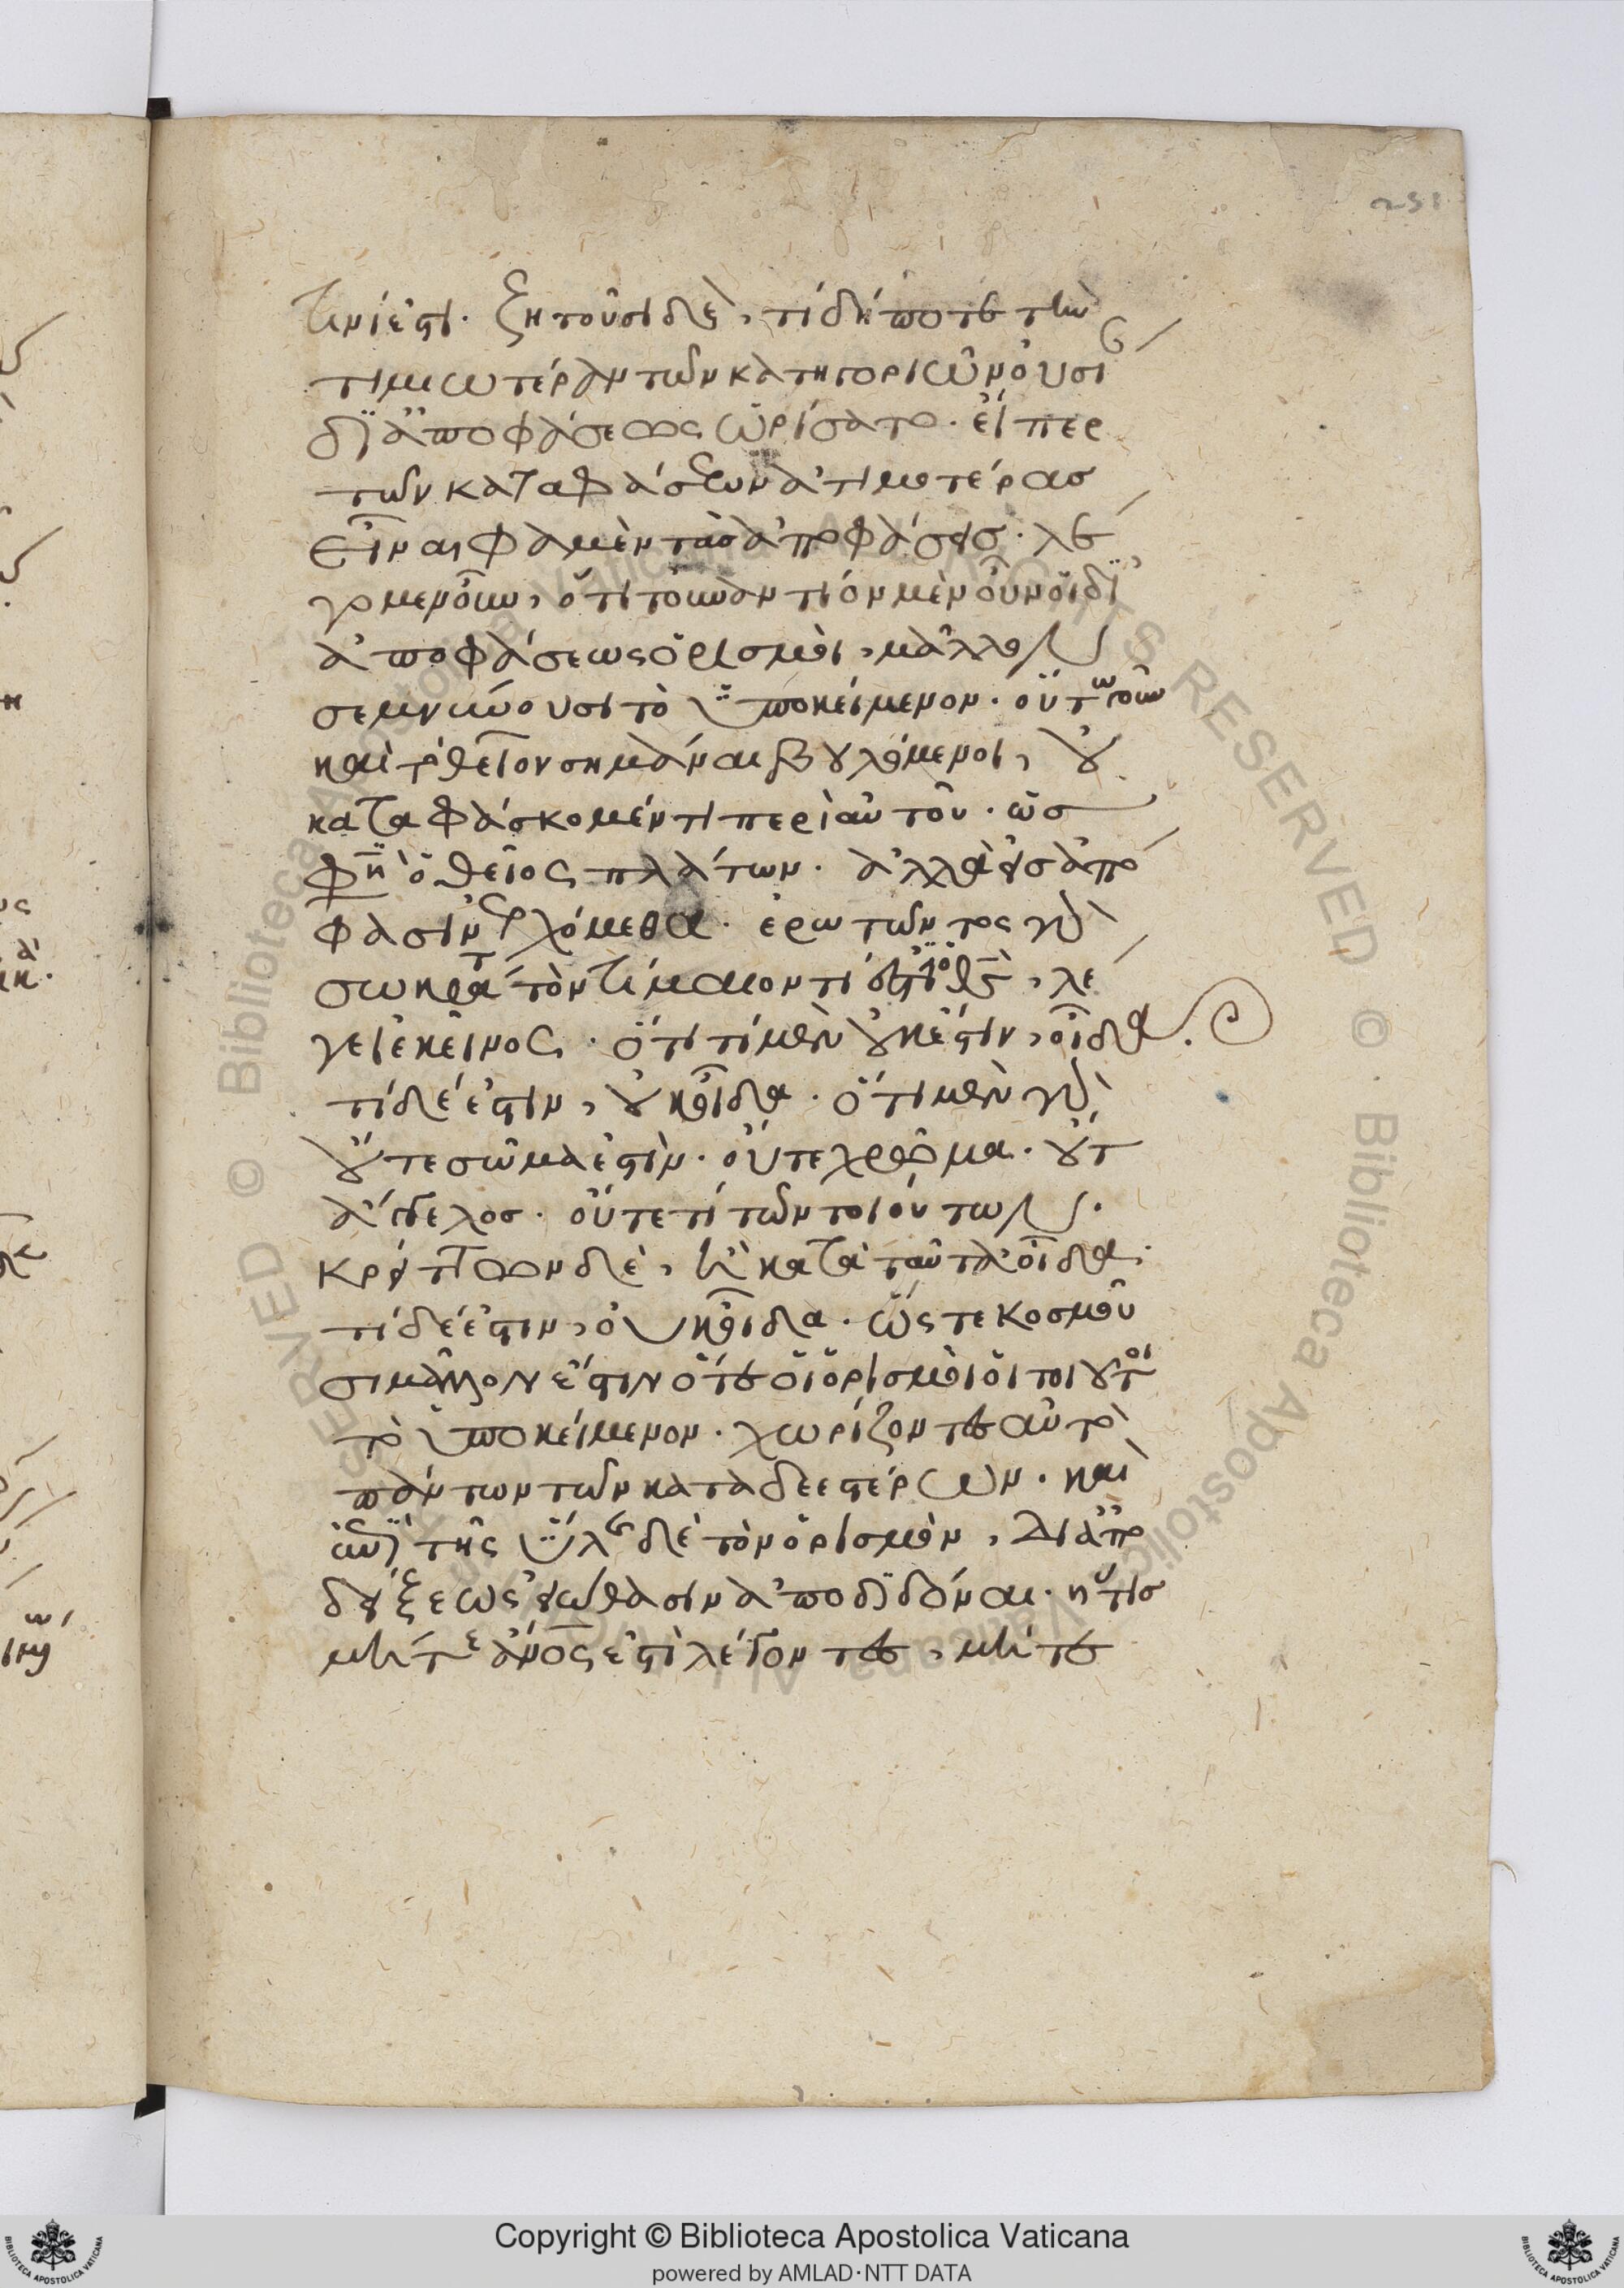 τινί ἐστι. ζητοῦσι δὲ, τί δήποτε τὴν
τιμιωτέραν τῶν κατηγοριῶν οὐσίαν
δι ἀποφάσεως ὡρίσατο. εἴπερ
τῶν καταφάσεων ἀτιμοτέρας
εἶναι φαμὲν τὰς ἀποφάσεις. λέ
γομεν οὖν, ὅτι τοὐναντίον μὲν οὖν οἱ δι
ἀποφάσεως ὁρισμοὶ, μᾶλλον
σεμνύνουσι τὸ ὑποκείμενον. οὕτω γοῦν
καὶ τὸ θεῖον σημᾶναι βουλόμενοι, οὐ
καταφάσκομέν τι περὶ αὐτοῦ. ὥς
φησι ὁ θεῖος πλάτων. ἀλλὰ εἰς ἀπό
φασιν ἐρχόμεθα. ἐρωτῶντος γὰρ
σωκράτους τὸν τίμαιον τί ἐστι ὁ θεὸς, λέ
γει ἐκεῖνος. ὅτι τί μὲν οὐκ ἔστιν, οἶδα.
τί δέ ἐστιν, οὐκ οἶδα. ὅτι μὲν γὰρ
οὔτε σῶμα ἐστὶν. οὔτε χρῶμα. οὔτε
ἄγγελος. οὔτε τί τῶν τοιούτων.
κρεῖττον δὲ, ἢ κατὰ ταῦτα οἶδα.
τί δέ ἐστιν, οὐκ οἶδα. ὥστε κοσμοῦ
σι μᾶλλόν ἐστιν ὅτε οἱ ὁρισμοὶ οἱ τοιοῦτοι
τὸ ὑποκείμενον. χωρίζοντες αὐτὸ
πάντων τῶν καταδεεστέρων. καὶ
ἀντὶ τῆς ὕλης δὲ τὸν ὁρισμὸν, δι ἀπο
δείξεως εἰώθασιν ἀποδιδόναι. ἤ τις
μήτε ἄνος ἐστὶ λέγοντες, μήτε